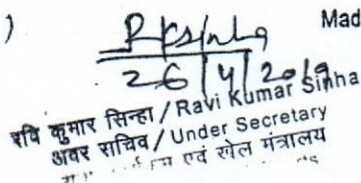 ) Mad
RKsinha
26/4/2019
रवि कुमार सिन्हा / Ravi Kumar Sinha
अवर सचिव / Under Secretary
एवं खेल मंत्रालय